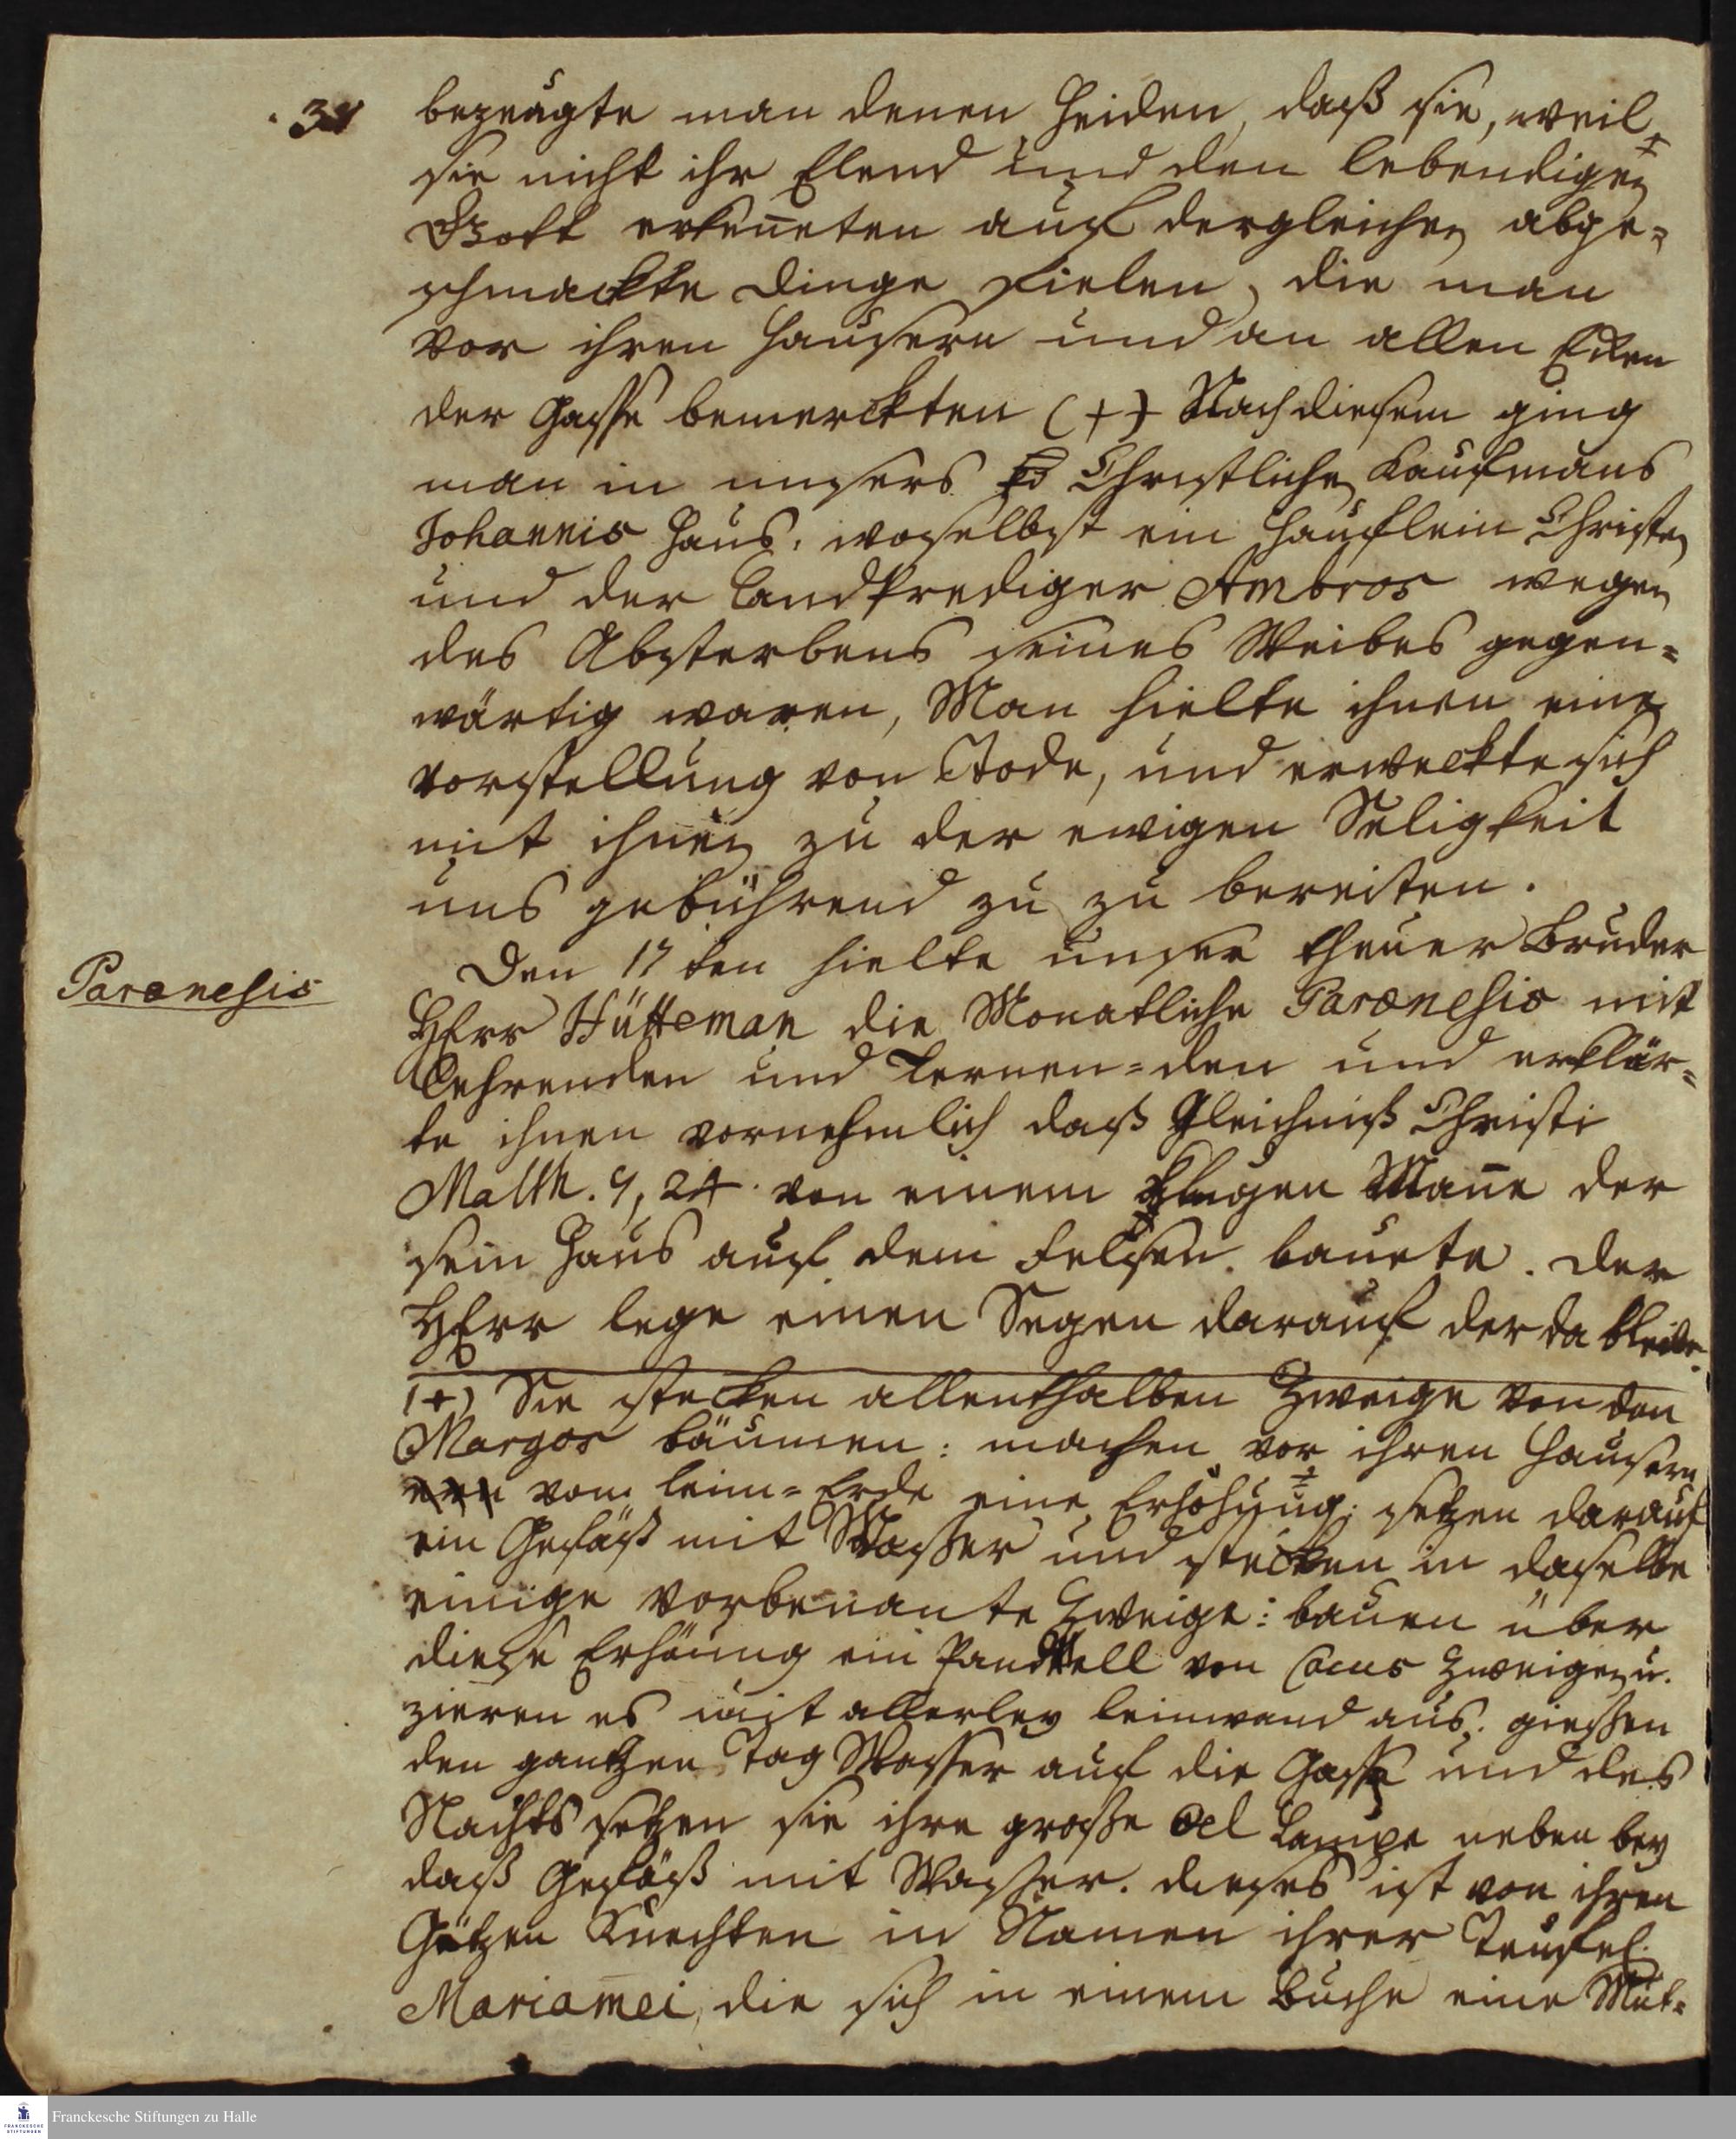 bezeugte man denen Heiden, daß sie, weil
sie nicht ihr Elend und den lebendigen
Gott erkeñeten auf dergleichen abge=
schmackte Dinge fielen, die man
vor ihren Hausern und an allen Ecken
der Gasse bemerckten (+) Nach diesem ging
man in unsers Christlichen Kaufmans
Johannis Haus, woselbst ein Hauflein Christen
und der Landprediger Ambros wegen
des Absterbens seines Weibes gegen=
wärtig waren, Man hielte ihnen eine
vorstellung von Tode, und erweckte sich
mit ihnen zu der ewigen Seligkeit
uns gebührend zu zu bereiten.
Den 17 ten hielte unser theuer Bruder
Paranesis
HErr Hütteman die Monatliche Paranesis mit
Lehrenden und Lernen=den und erklär=
te ihnen vornehmlich daß Gleichniß Christi
Matth. 7, 24. von einem klugen Mañe der
sein Haus auf dem Felsen bauete. Der
HErr lege einen Segen darauf der da bleibe.
(+) Sie stecken allenthalben Zweige von den
Margos bäumen: machen vor ihren Hausern
von leim=Erde eine Erhöhung: setzen darauf
ein Gefäß mit Waßer und stecken in daselbe
einige vorbenante Zweige: bauen über
diese Erhöung ein Pandell von Cocus Zweigen u.
zieren es mit allerley leinwand aus: giessen
den gantzen Tag Wasser auf die Gasse und des
Nachts setzen sie ihre große Oel Lampe neben bey
daß Gefäß mit Waßer. dieses ist von ihren
Götzen Knechten in Namen ihrer Teufel
Mariam̄ei, die sich in einem Buche eine Mut=